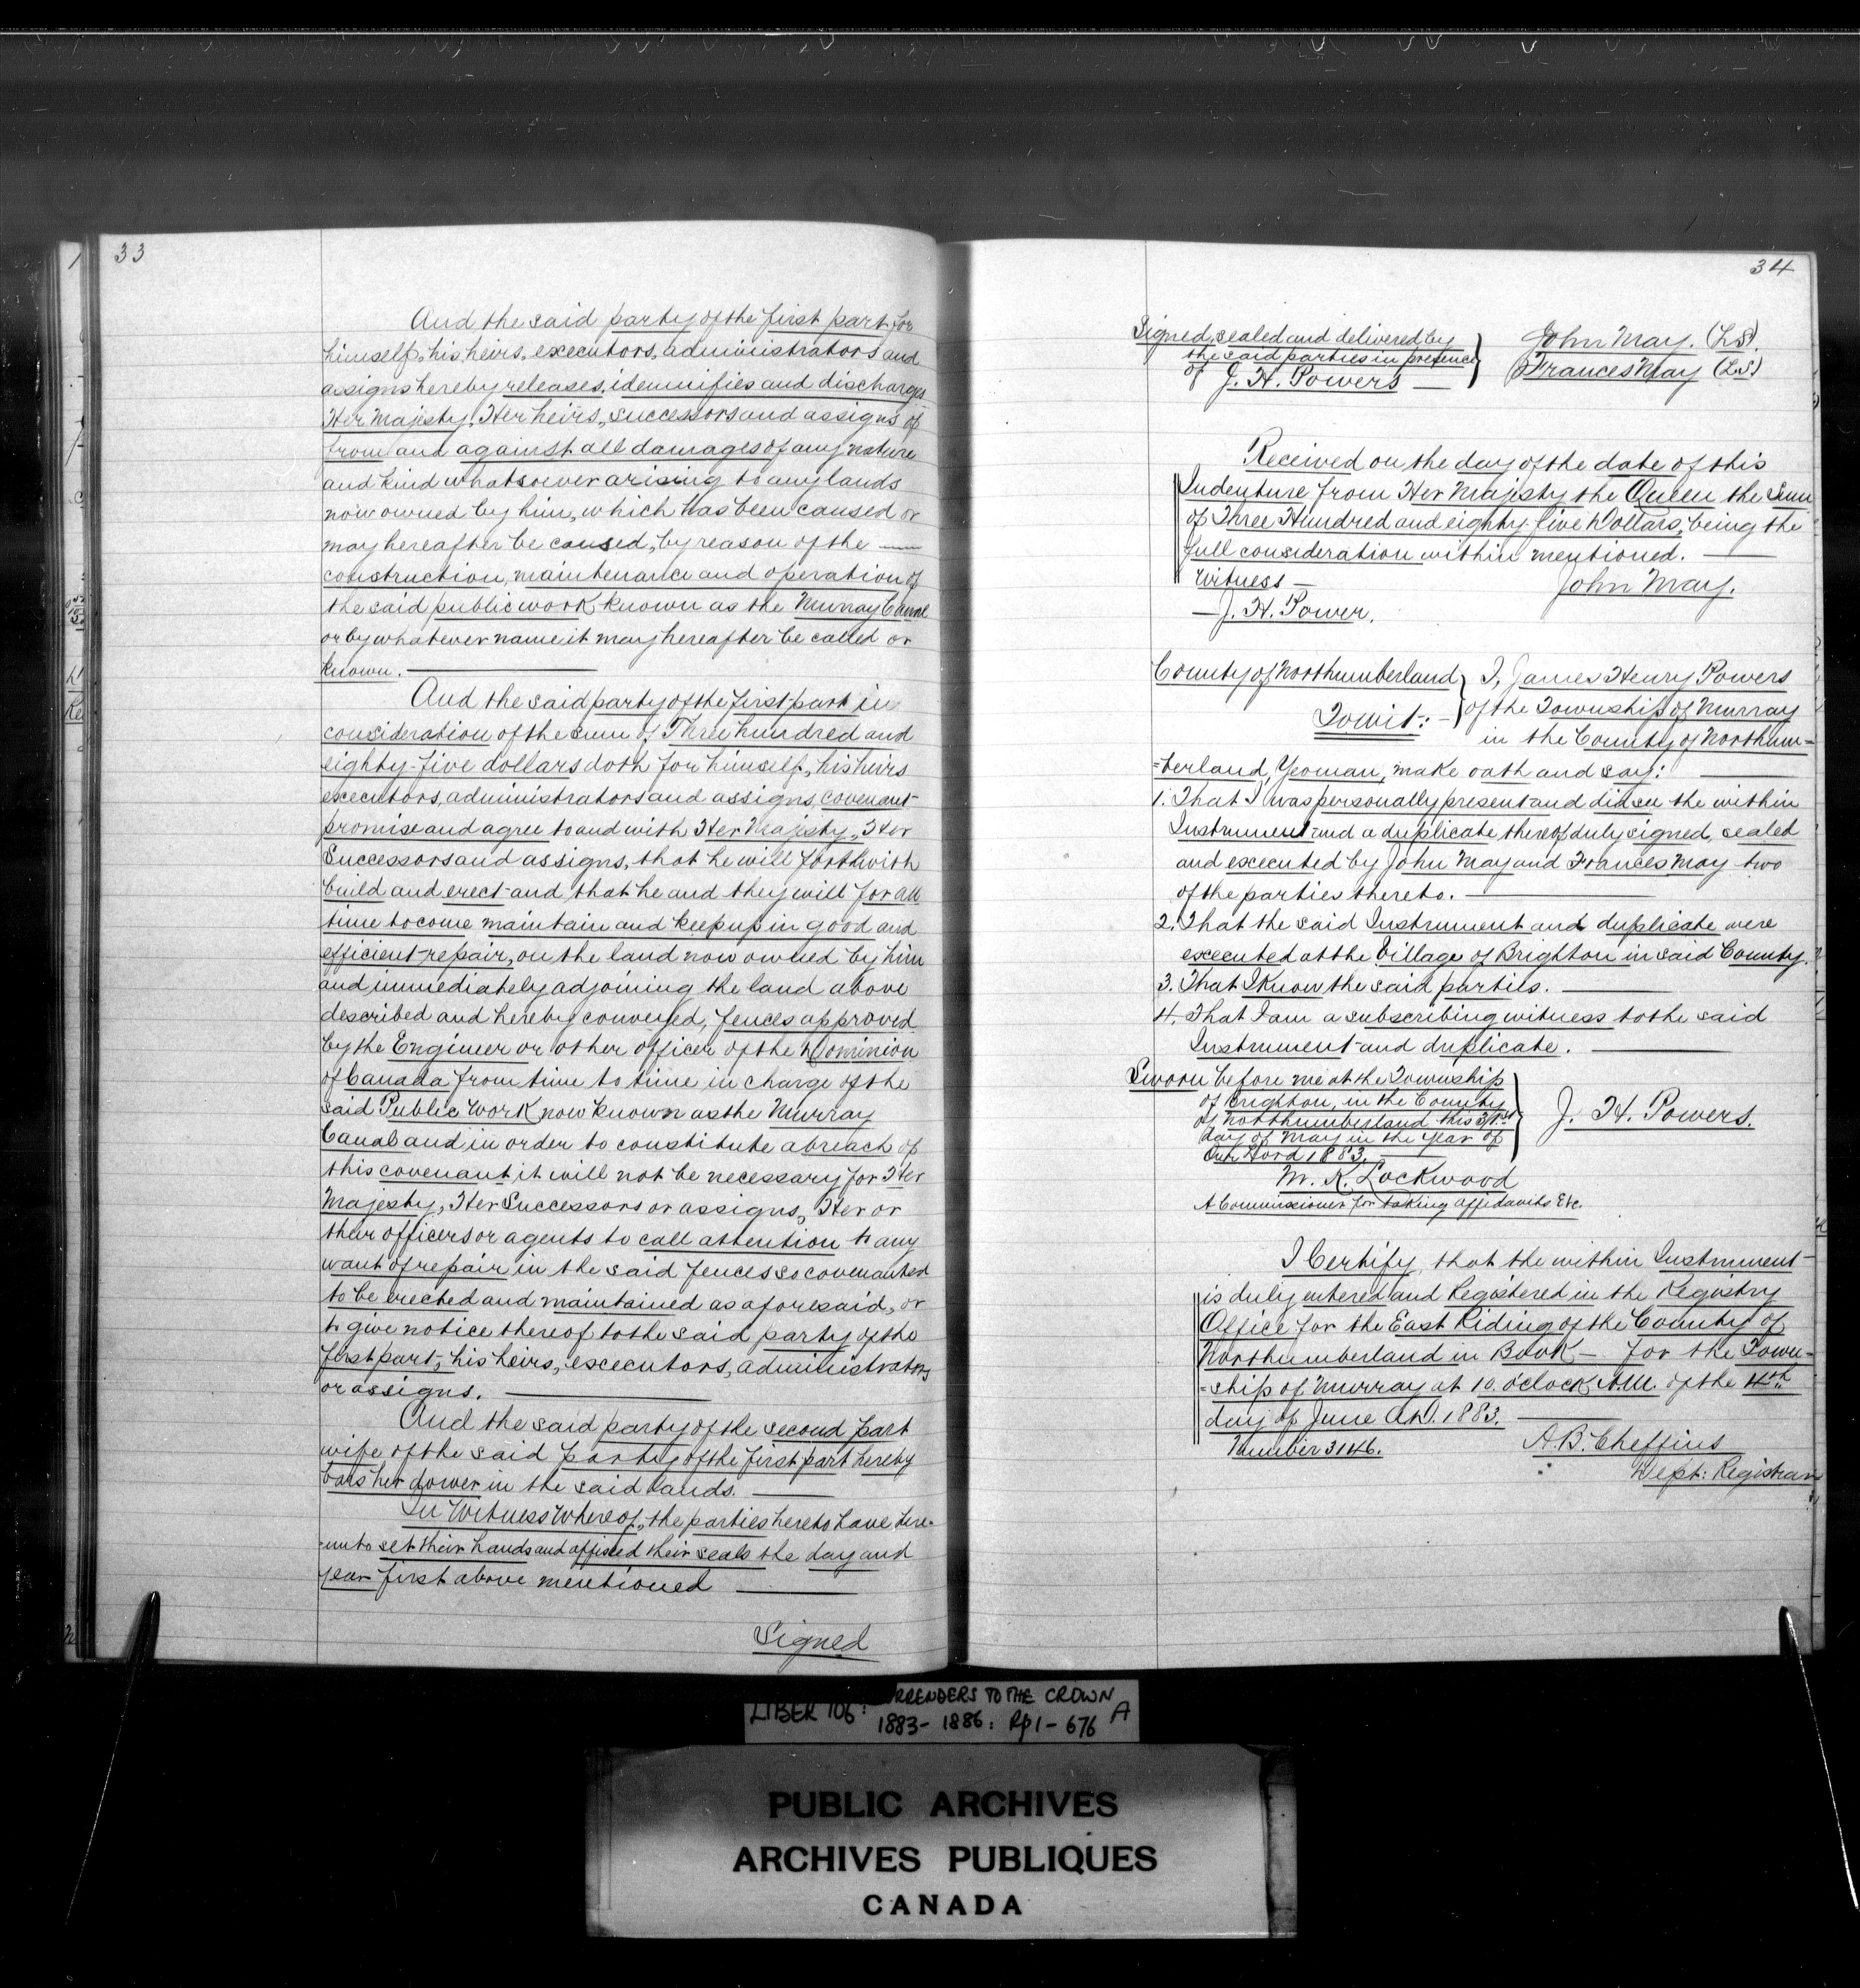 33
And the said party of the first part for
himself, his heirs, executors, administrators and
assigns hereby releases, idemnifies and discharges
Her Majesty, Her heirs, successors and assigns of
from and against all damages of any nature
and kind whatsoever arising to any lands
now owned by him, which has been caused or
may hereafter be caused, by reason of the —
construction, maintenance and operation of
the said public work known as the Murray Canal
or by whatever name it may hereafter be called or
known. —
And the said party of the first part in
consideration of the sum of Three hundred and
eighty-five dollars doth for himself, his heirs
executors, administrators and assigns, covenant
promise and agree to and with Her Majesty, Her
Successors and assigns, that he will forthwith
build and erect and that he and they will for all
time to come maintain and keep up in good and
efficient repair, on the land now owned by him
and immediately adjoining the land above
described and hereby conveyed, fences approved
by the Engineer or other officer of the Dominion
of Canada from time to time in charge of the
said Public Work now known as the Murray
Canal and in order to constitute a breach of
this covenant it will not be necessary for Her
Majesty, Her Successors or assigns, Her or
their officers or agents to call attention to any
want of repair in the said fences so covenanted
to be erected and maintained as aforesaid, or
to give notice thereof to the said party of the
first part, his heirs, excecutors, administrators
or assigns. —
And the said party of the second part
wife of the said party of the first part hereby
bars her dower in the said lands. —
In Witness Whereof, the parties hereto have here-
-unto set their hands and affixed their seals the day and
year first above mentioned —
Signed
34
Signed, sealed and delivered by
the said parties in presence
of J. H. Powers —
John May. (LS).
Frances May (LS)
Received on the day of the date of this
Indenture from Her Majesty the Queen the Sum
of Three Hundred and eighty-five Dollars, being the
full consideration within mentioned. —
Witness —
John May.
— J. H. Power.
County of Northumberland
Towit: -
I, James Henry Powers
of the Township of Murray
in the County of Northum=
=berland, Yeoman, make oath and say: —
1. That I was personally present and did see the within
Instrument and a duplicate thereof duly signed, sealed
and excecuted by John May and Frances May two
of the parties thereto. —
2. That the said Instrument and duplicate were
excecuted at the Village of Brighton in said County.
3. That I Know the said parties. —
4. That I am a subscribing witness to the said
Instrument and duplicate. —
Sworn before me at the Township
of Brighton, in the County
of Northumberland this 31st
day of May in the year of
Our Lord 1883. —
J. H. Powers.
M. K. Lockwood
A Commissioner for taking affidavits Etc.
I Certify, that the within Instrument
is duly entered and Registered in the Registry
Office for the East Riding of the County of
Northumberland in Book — for the Town=
=ship of Murray at 10. o'clock A.M. of the 4th
day of June A.D. 1883. —
Number 3146.
A. B. Cheffins
Dept: Registrar
LIBER 106: RRENDERS TO THE CROWN
1883 - 1886: Pp 1 - 676 A
PUBLIC ARCHIVES
ARCHIVES PUBLIQUES
CANADA